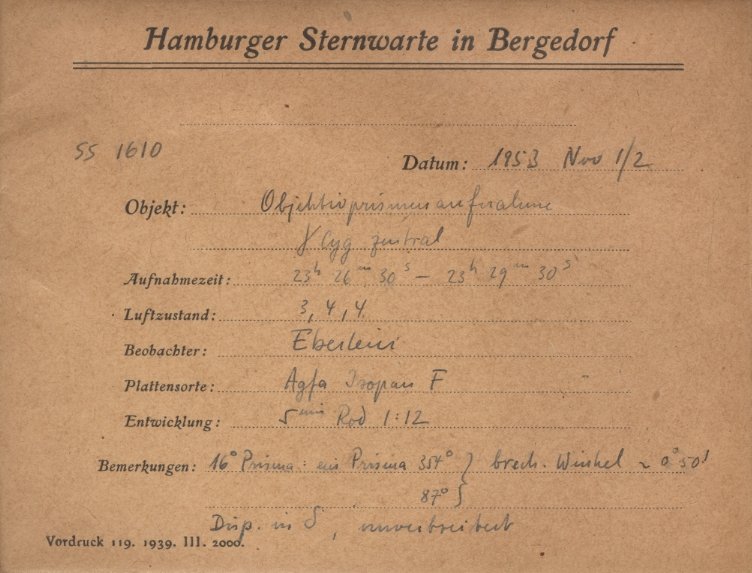 Hamburger Sternwarte in Bergedorf
SS 1610
Datum: 1953 Nov 1/2
Objekt: Objektivprismenaufnahme
γ Cyg zentral
Aufnahmezeit: 23ʰ 26ᵐ 30ˢ – 23ʰ 29ᵐ 30ˢ
Luftzustand: 3, 4, 4
Beobachter:
Plattensorte: Agfa Isopan F
Entwicklung: 5ᵐⁱⁿ Rod 1:12
Bemerkungen: 16° Prisma: ein Prisma 354° } brech. Winkel ~ 0°50'
87°
Disp. in δ, unverbreitert
Vordruck 119. 1939. III. 2000.